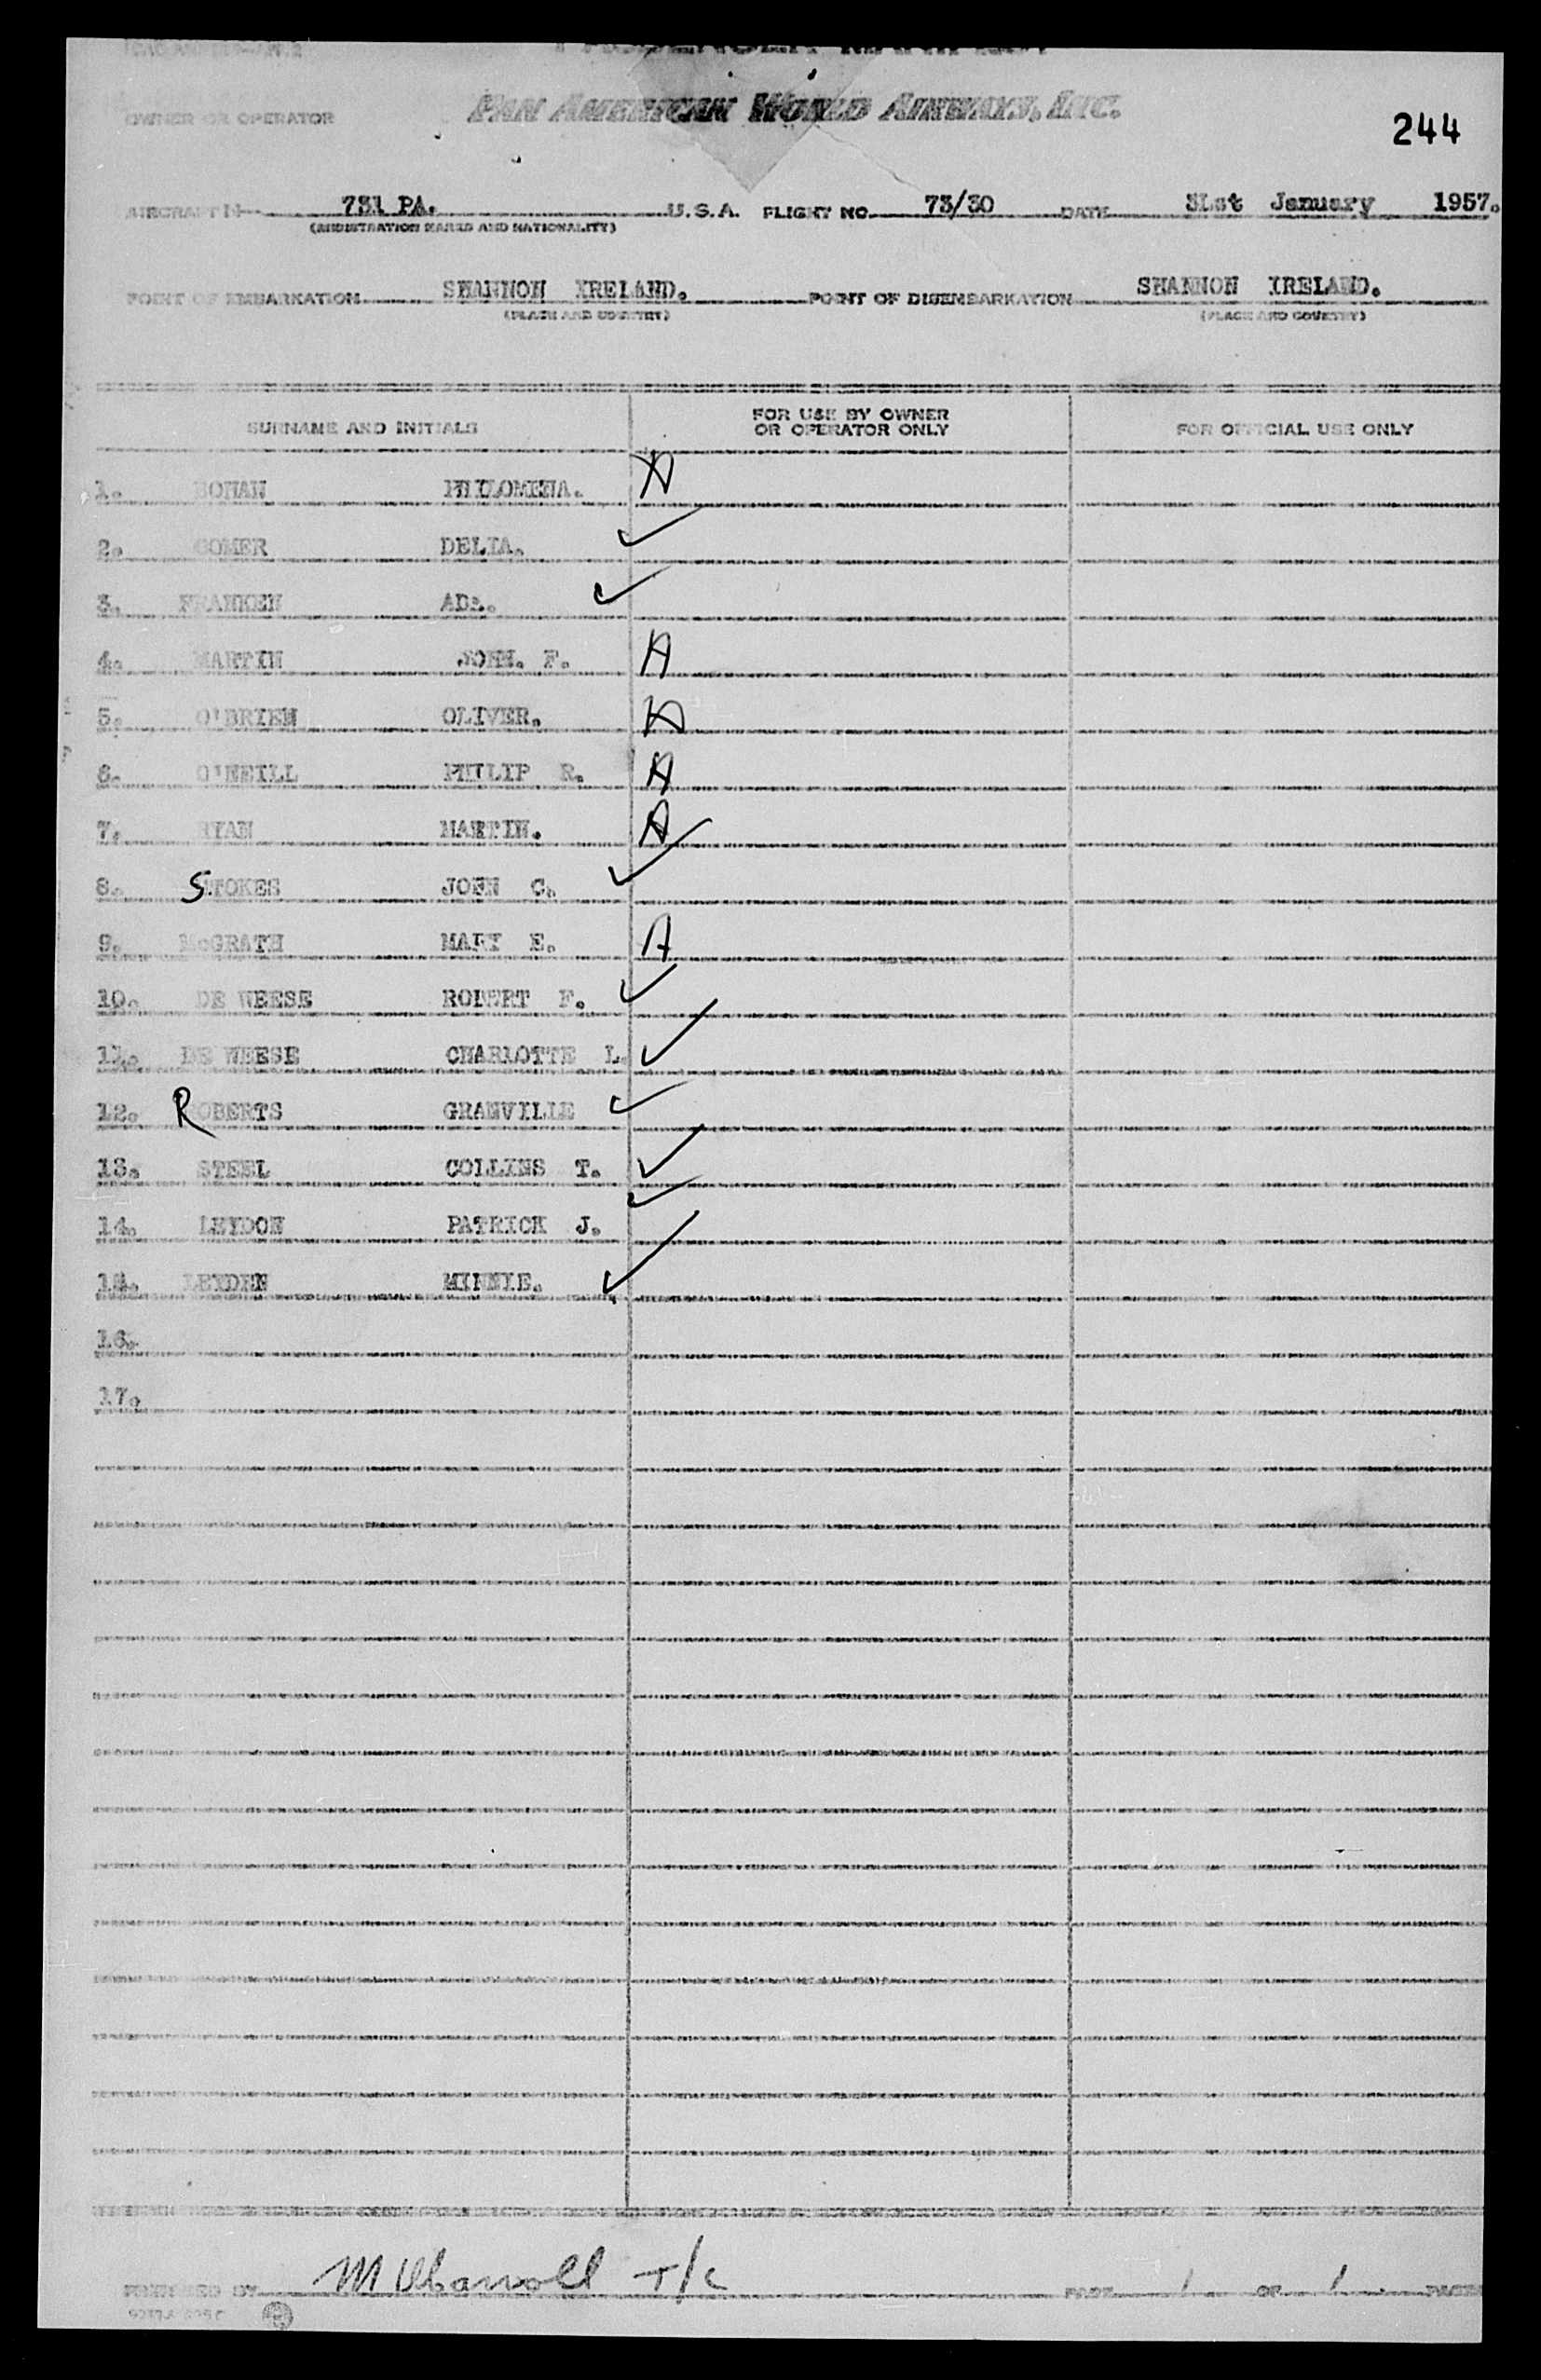 PASSENGER MANIFEST
OWNER OR OPERATOR PAN AMERICAN WORLD AIRWAYS, INC.
244
AIRCRAFT N 731 PA. U.S.A. FLIGHT NO. 73/30 DATE 31st January 1957.
(REGISTRATION MARKS AND NATIONALITY)
POINT OF EMBARKATION SHANNON IRELAND. POINT OF DISEMBARKATION SHANNON IRELAND.
(PLACE AND COUNTRY) (PLACE AND COUNTRY)
SURNAME AND INITIALS FOR USE BY OWNER OR OPERATOR ONLY FOR OFFICIAL USE ONLY
1. BOHAN PHILOMENA. A
2. COMER DELIA. ✓
3. FRANKEN ADA. ✓
4. MARTIN JOHN. F. A
5. O'BRIEN OLIVER. A
6. O'NEILL PHILIP R. A
7. RYAN MARTIN. A
8. STOKES JOHN C. ✓
9. McGRATH MARY E. A
10. DE WEESE ROBERT F. ✓
11. DE WEESE CHARLOTTE L. ✓
12. ROBERTS GRANVILLE ✓
13. STEEL COLLINS T. ✓
14. LEYDON PATRICK J. ✓
15. LEYDEN MINNIE. ✓
16.
17.
PREPARED BY T/c PAGE 1 OF 1. PAGES